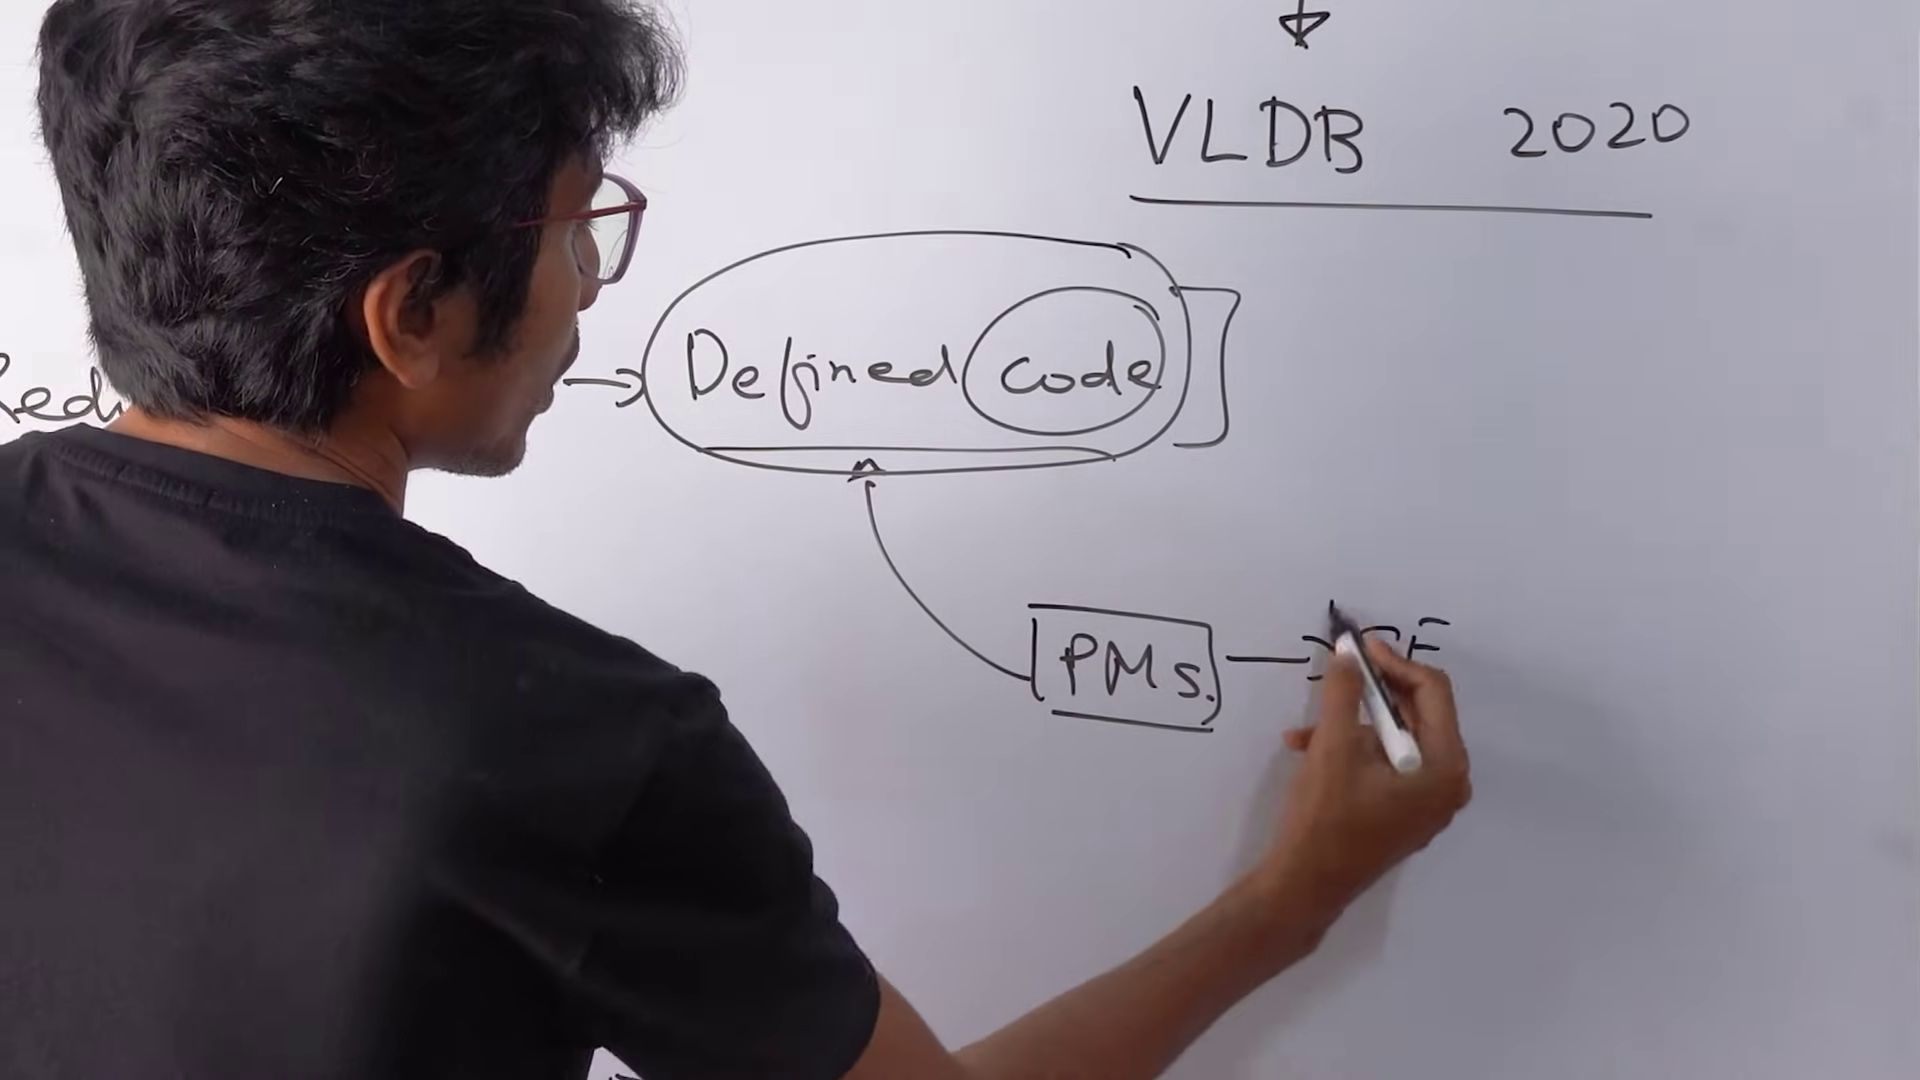 VLDB 2020
Defined code
PMs.